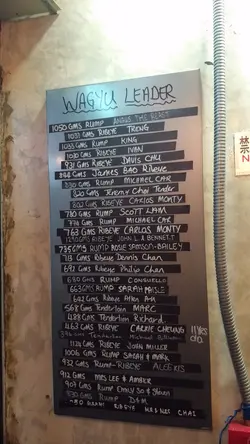 WAGYU LEADER
1050 GMS RUMP ANGUS THE BEAST
1037 GMS RIBEYE TRENG
1033 GMS RUMP KING
1010 GMS RIBEYE IVAN
931 GMS RIBEYE DAVIS CHU
888 GMS JAMES BAO RIBEYE
830 GMS RUMP MICHAEL CAR
820 GMS Jeremy Choi Tender
802 GMS RIBEYE CARLOS MONTY
780 GMS RUMP SCOTT LAM
774 GMS RUMP MICHAEL CAR
763 GMS RIBEYE CARLOS MONTY
GMS RIBEYE JOHN L. & BENNETT
735 GMS RUMP ROSIE BAILEY
713 GMS Ribeye Dennis Chan
692 GMS Ribeye Philip Chan
680 GMS RUMP
663 GMS RUMP SARAH
602 GMS Ribeye Allen
568 GMS Tenderloin MARC
488 GMS Tenderloin Richard
463 GMS RIBEYE CARRIE CHEUNG 11 Yrs old
396 GMS Tenderloin Michael
1124 GMS Ribeye JOHN MILLER
1006 GMS RUMP SARAH & MARK
932 GMS RUMP-RIBEYE ALEXIS
912 GMS MRS LEE & AMBER
907 GMS RUMP EMILY
830 GMS RUMP DAM
780 GRAMS RIBEYE CHAI
禁
N